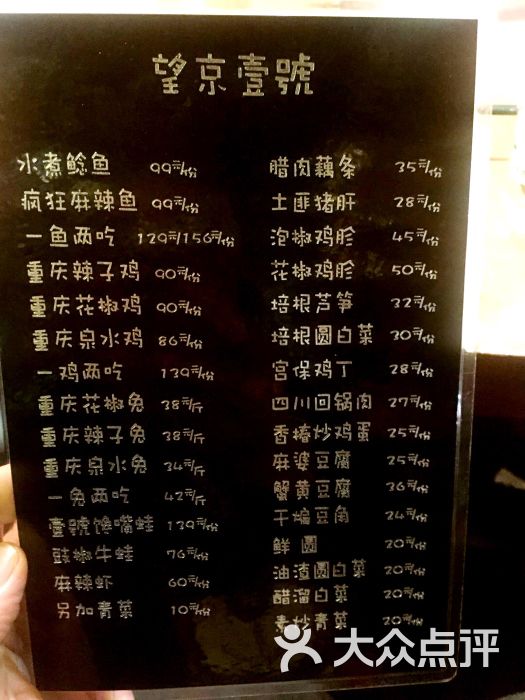 望京壹號
水煮鲶鱼 99元/份
疯狂麻辣鱼 99元/份
一鱼两吃 129元/156元/份
重庆辣子鸡 90元/份
重庆花椒鸡 90元/份
重庆泉水鸡 86元/份
一鸡两吃 139元/份
重庆花椒兔 38元/斤
重庆辣子兔 38元/斤
重庆泉水兔 34元/斤
一兔两吃 42元/斤
壹號馋嘴蛙 139元/份
豉椒牛蛙 76元/份
麻辣虾 60元/份
另加青菜 10元/份
腊肉藕条 35元/份
土匪猪肝 28元/份
泡椒鸡胗 45元/份
花椒鸡胗 50元/份
培根芦笋 32元/份
培根圆白菜 30元/份
宫保鸡丁 28元/份
四川回锅肉 27元/份
香椿炒鸡蛋 25元/份
麻婆豆腐 25元/份
蟹黄豆腐 36元/份
干煸豆角 24元/份
鲜 圆 20元/份
油渣圆白菜 20元/份
醋溜白菜 20元/份
素炒青菜 20元/份
大众点评